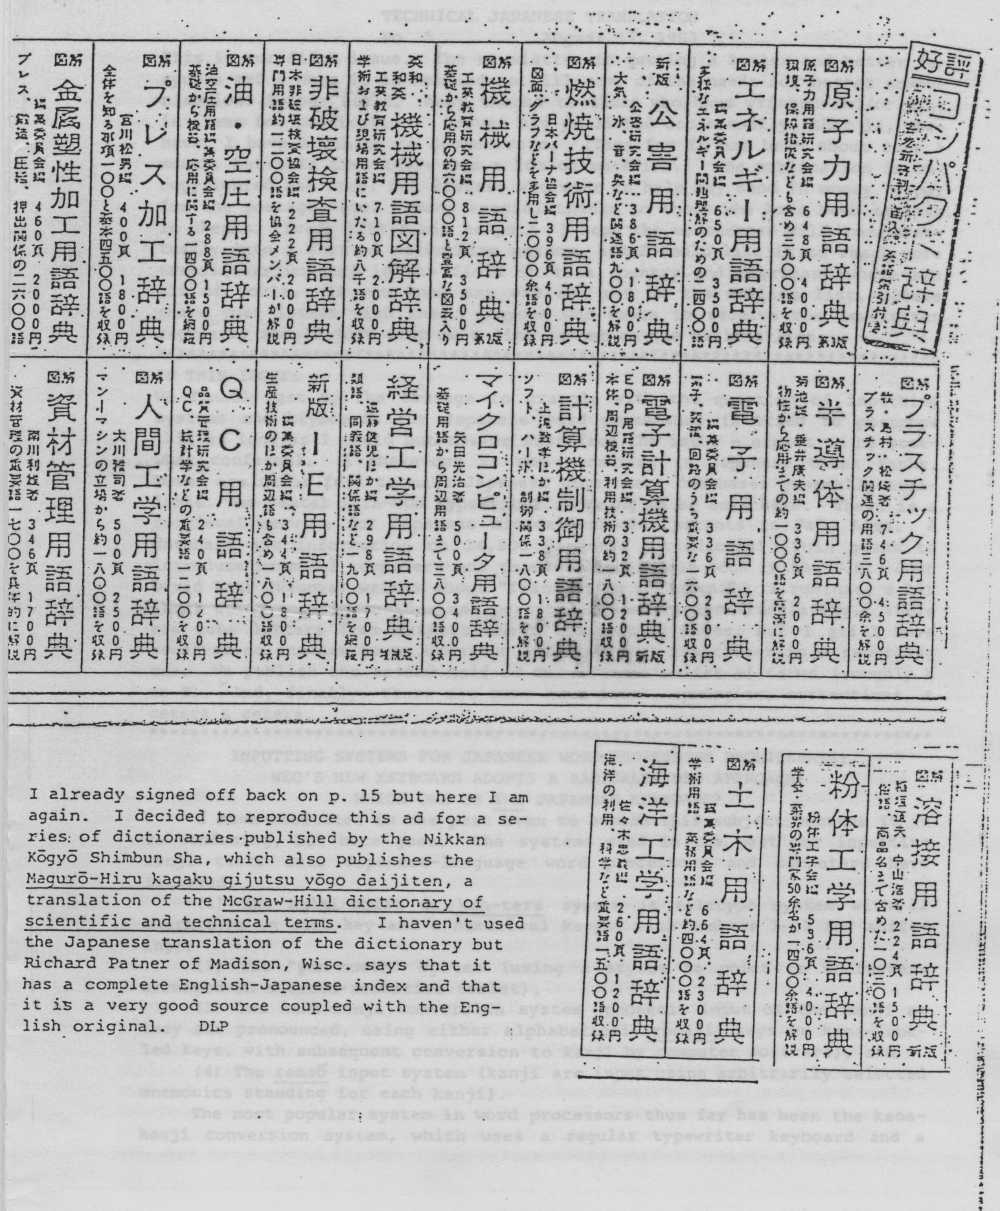 好評
コンパクト辞典
図解 原子力用語辞典
原子力用語研究会編 648頁 4000円
環境、保障措置なども含め三九〇〇語を収録 第2版
図解 エネルギー用語辞典
編集委員会編 650頁 3500円
多様なエネルギー問題理解のための二四〇〇語
新版 公害用語辞典
公害研究会編 386頁 1800円
大気、水、音、臭など関連語九〇〇を解説 第2版
図解 燃焼技術用語辞典
日本バーナ協会編 396頁 4000円
図面、グラフなどを多用し二〇〇〇余語を収録
図解 機械用語辞典
工業教育研究会編 812頁 3500円
基礎から応用の約六〇〇〇語と豊富な図表入り 第2版
英和・和英 機械用語図解辞典
工業教育研究会編 710頁 2000円
学術および現場用語にいたる約八千語を収録
図解 非破壊検査用語辞典
日本非破壊検査協会編 222頁 2000円
専門用語約一二〇〇語を協会メンバーが解説
図解 油・空圧用語辞典
油空圧用語編集委員会編 288頁 1500円
基礎から機器、応用に関する一四〇〇語を網羅
図解 プレス加工辞典
宮川松男編 400頁 1800円
全体を知る要項一〇〇と基本四五〇語を収録
図解 金属塑性加工用語辞典
編集委員会編 460頁 2000円
プレス、鍛造、圧延、押出関係の二六〇〇語
図解 プラスチック用語辞典
牧・島村・松俊者 746頁 4500円
プラスチック関連の用語三八〇〇余を解説
図解 半導体用語辞典
菊池誠・垂井康夫編 336頁 2000円
物性から応用までの約一〇〇〇語を克明に解説
図解 電子用語辞典
編集委員会編 336頁 2300円
素子、装置、回路のうち重要な一六〇〇語収録
図解 電子計算機用語辞典
EDP用語研究会編 332頁 1200円
本体、周辺機器、利用技術の約一〇〇〇語収録 新版
図解 計算機制御用語辞典
上滝致孝ほか編 338頁 1800円
ソフト、ハード、制御関係一八〇〇語を解説
マイクロコンピュータ用語辞典
矢田光治著 500頁 3400円
基礎用語から周辺用語まで三八〇〇語収録
経営工学用語辞典
遠藤健児ほか編 298頁 1700円
類語、同義語、関係語など一九〇〇語を網羅
新版 IE用語辞典
編集委員会編 344頁 1800円
生産技術のほか周辺語も含め一八〇〇語収録
QC用語辞典
品質管理研究会編 240頁 1200円
QC、統計学などの重要語一二〇〇を収録
図解 人間工学用語辞典
大川雅司著 500頁 2500円
マン－マシンの立場から約一八〇〇語を収録
図解 資材管理用語辞典
南川利雄著 346頁 1700円
資材管理の重要語一七〇〇を具体的に解説
図解 溶接用語辞典
稲垣道夫・中山浩著 224頁 1500円
俗語、商品名まで含めた一〇三〇語を収録 新版
粉体工学用語辞典
粉体工学会編 536頁 4000円
学会・業界の専門家50余名が一四〇〇余語を解説
図解 土木用語辞典
編集委員会編 664頁 2300円
学術用語、実務用語など約四〇〇〇語を収録
海洋工学用語辞典
佐々木忠義編 260頁 1200円
海洋の利用、科学など重要語一五〇〇語収録
I already signed off back on p. 15 but here I am
again. I decided to reproduce this ad for a se-
ries of dictionaries published by the Nikkan
Kōgyō Shimbun Sha, which also publishes the
Magurō-Hiru kagaku gijutsu yōgo daijiten, a
translation of the McGraw-Hill dictionary of
scientific and technical terms. I haven't used
the Japanese translation of the dictionary but
Richard Patner of Madison, Wisc. says that it
has a complete English-Japanese index and that
it is a very good source coupled with the Eng-
lish original. DLP